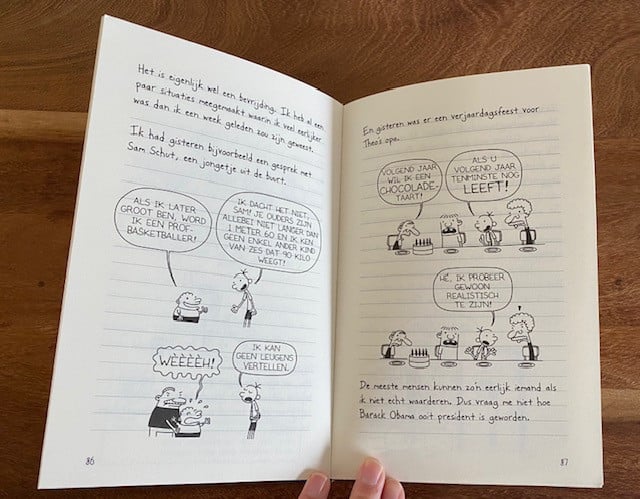 Het is eigenlijk wel een bevrijding. Ik heb al een
paar situaties meegemaakt waarin ik veel eerlijker
was dan ik een week geleden zou zijn geweest.
Ik had gisteren bijvoorbeeld een gesprek met
Sam Schut, een jongetje uit de buurt.
ALS IK LATER
GROOT BEN, WORD
IK EEN PROF-
BASKETBALLER!
IK DACHT HET NIET,
SAM! JE OUDERS ZIJN
ALLEBEI NIET LANGER DAN
1 METER 60 EN IK KEN
GEEN ENKEL ANDER KIND
VAN ZES DAT 90 KILO
WEEGT!
WÈÈÈÈH!
IK KAN
GEEN LEUGENS
VERTELLEN.
86
En gisteren was er een verjaardagsfeest voor
Theo's opa.
VOLGEND JAAR
WIL IK EEN
CHOCOLADE-
TAART!
ALS U
VOLGEND JAAR
TENMINSTE NOG
LEEFT!
HÉ, IK PROBEER
GEWOON
REALISTISCH
TE ZIJN!
De meeste mensen kunnen zo'n eerlijk iemand als
ik niet echt waarderen. Dus vraag me niet hoe
Barack Obama ooit president is geworden.
87